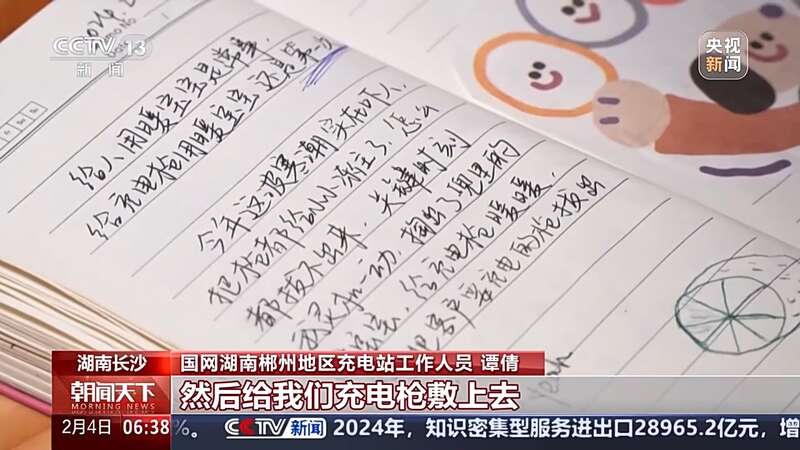 CCTV 13
新闻
央视
新闻
给人用暖宝宝是常事
给充电枪用暖宝宝还是第一次
今年这波寒潮实在吓人，
把枪都给
冻住了，怎么
都拔不出来，关键时刻
我灵机一动，掏出了兜里的
给充电枪暖暖，
充电的枪拔出
Yeah
湖南长沙
国网湖南郴州地区充电站工作人员 谭倩
朝闻天下
MORNING NEWS
然后给我们充电枪敷上去
2月4日
06:38
%。
CCTV新闻
2024年，知识密集型服务进出口28965.2亿元，增